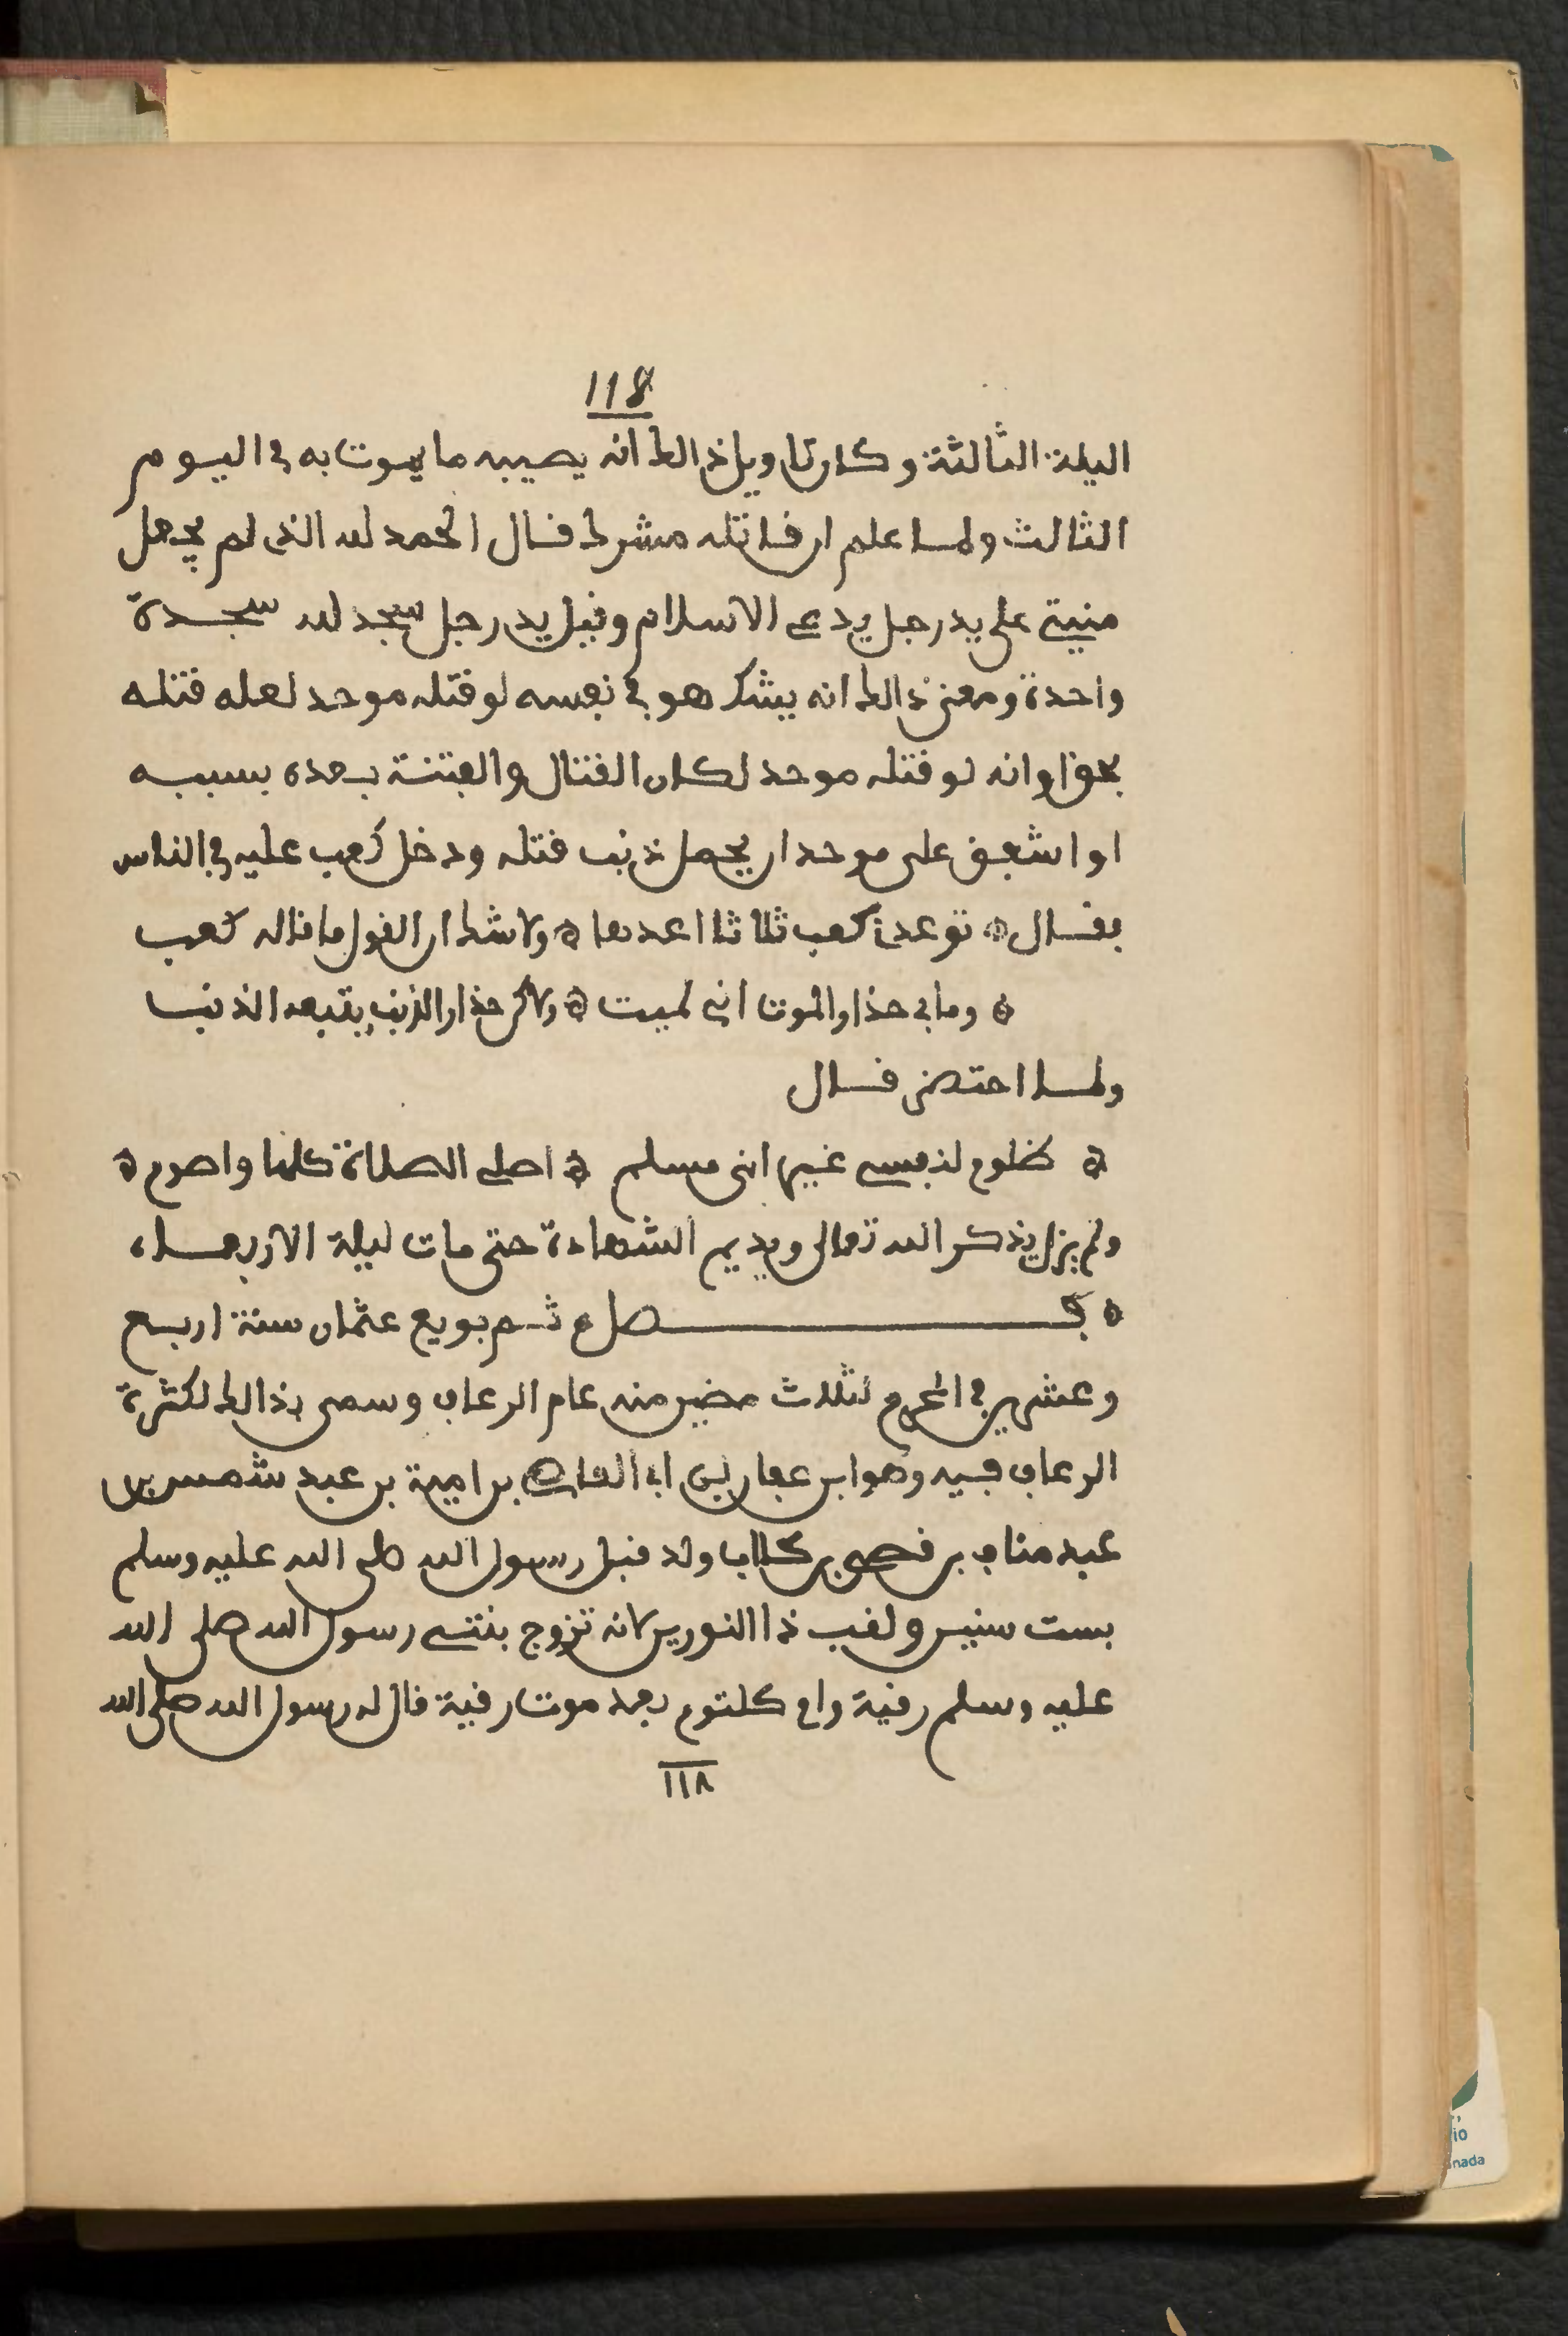 118
اليلة الثالثة وكان تاويل ذالك انه يصيبه ما يموت به في اليوم
الثالث ولما علم ان قاتله مشرك قال الحمد لله الذي لم يجعل
منيتي على يد رجل يدعي الاسلام وقيل يد رجل سجد لله سجدة
واحدة ومعنى ذالك انه يشك هو في نفسه لو قتله موحد لعله قتله
بحق او انه لو قتله موحد لكان القتال والفتنة بعده بسببه
او اشفق على موحد ان يحمل ذنب قتله ودخل كعب عليه في الناس
فقال ۞ توعدني كعب ثلاثا اعدها ۞ ولا شك ان القول ما قاله كعب
۞ وما بي حذار الموت اني لميت ۞ ولاكن حذار الذنب يتبعه الذنب
ولما احتضر قال
۞ ظلوم لنفسي غير اني مسلم ۞ اصلي الصلاة كلها واصوم ۞
ولم يزل يذكر الله تعالى ويديم الشهادة حتى مات ليلة الاربعاء
۞ فصل ثم بويع عثمان سنة اربع
وعشرين في المحرم لثلاث مضين منه عام الرعاف وسمى بذالك لكثرة
الرعاف فيه وهو ابن عفان بن ابي العاص بن امية بن عبد شمس بن
عبد مناف بن قصي بن كلاب ولد قبل رسول الله صلى الله عليه وسلم
بست سنين ولقب ذا النورين لانه تزوج بنتي رسول الله صلى الله
عليه وسلم رقية وام كلثوم بعد موت رقية قال له رسول الله صلى الله
١١٨